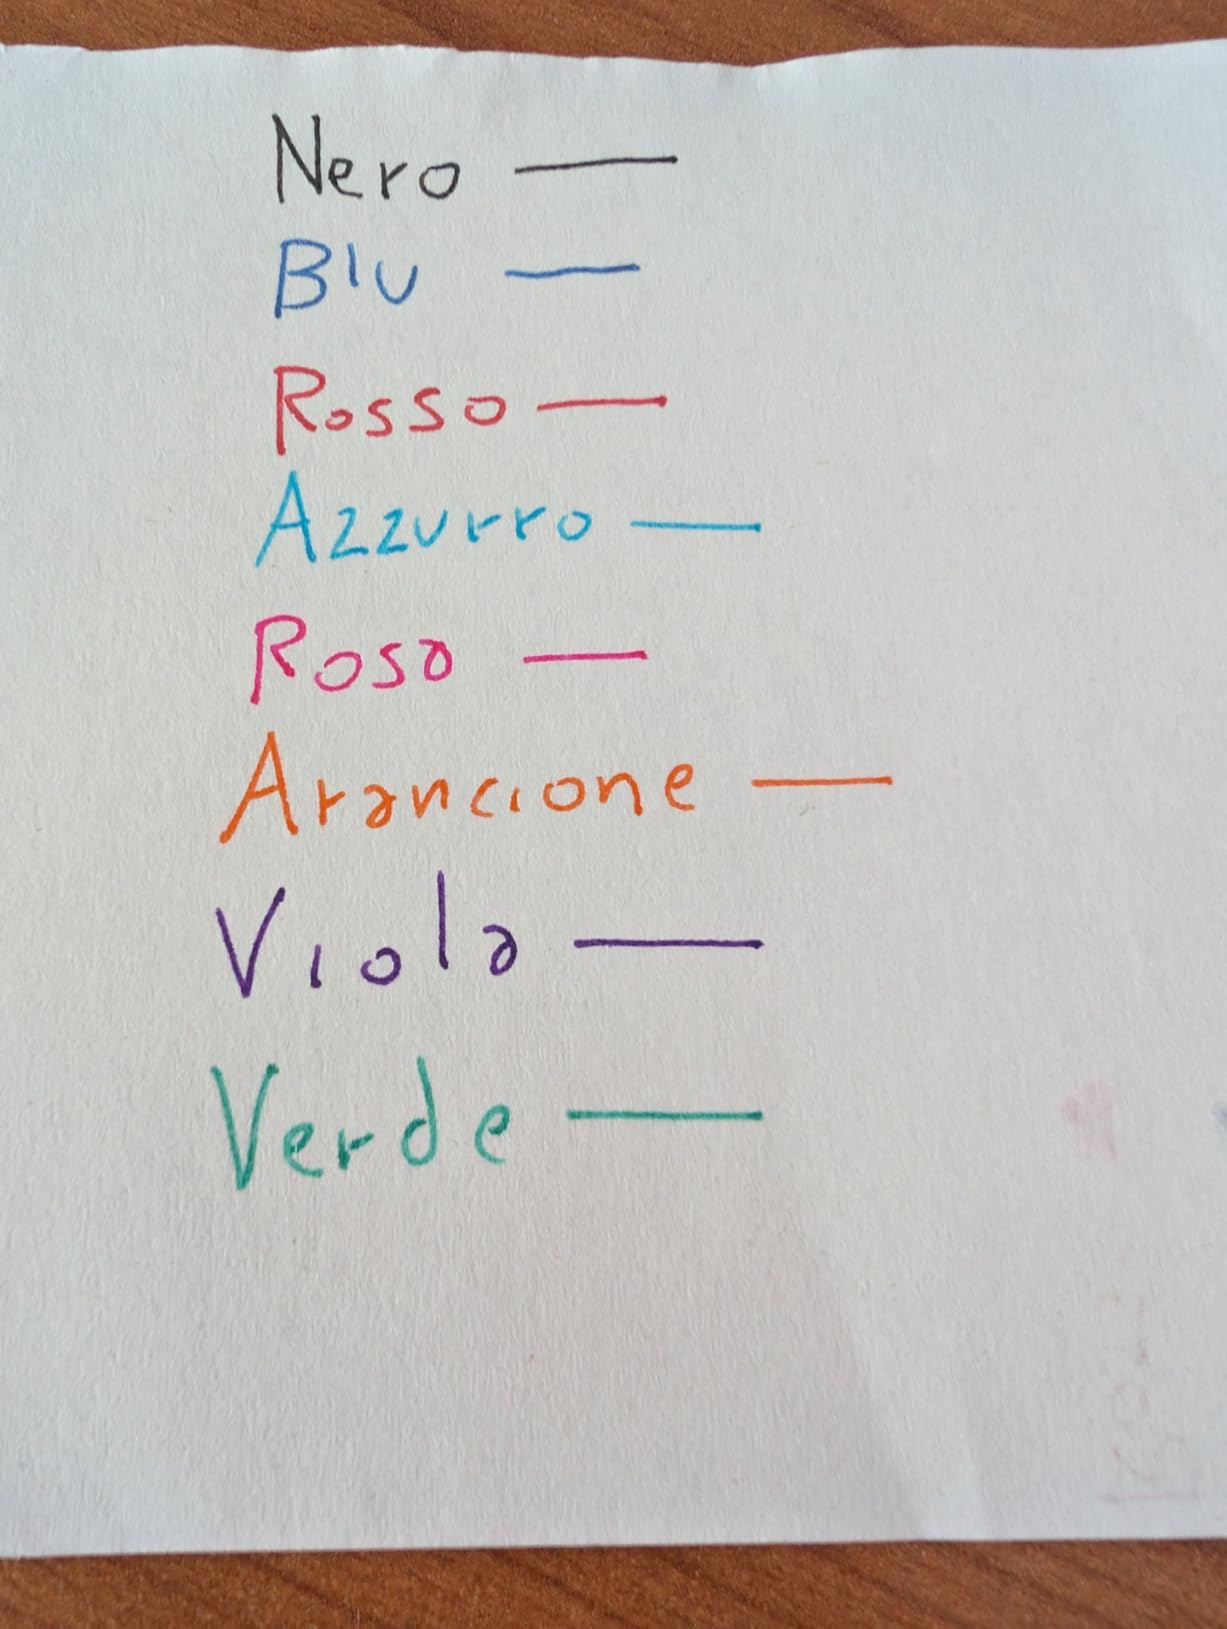 Nero —
Blu —
Rosso —
Azzurro —
Rosa —
Arancione —
Viola —
Verde —